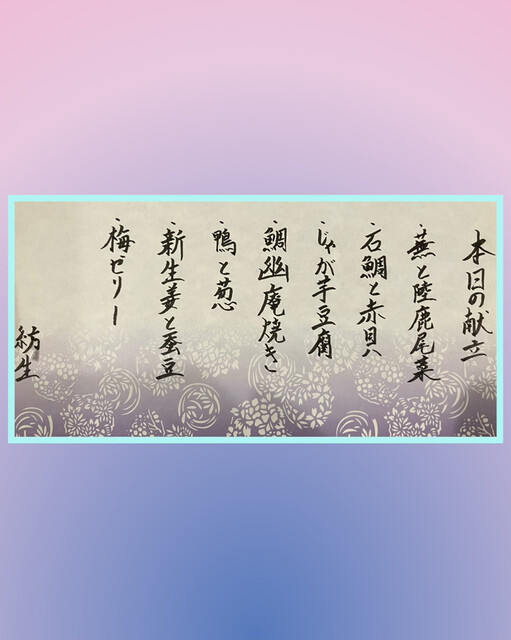 本日の献立
・蕪と陸鹿尾菜
・石鯛と赤貝
・じゃが芋豆腐
・鯛幽庵焼き
・鴨と葱
・新生姜と蚕豆
・梅ゼリー
紡生